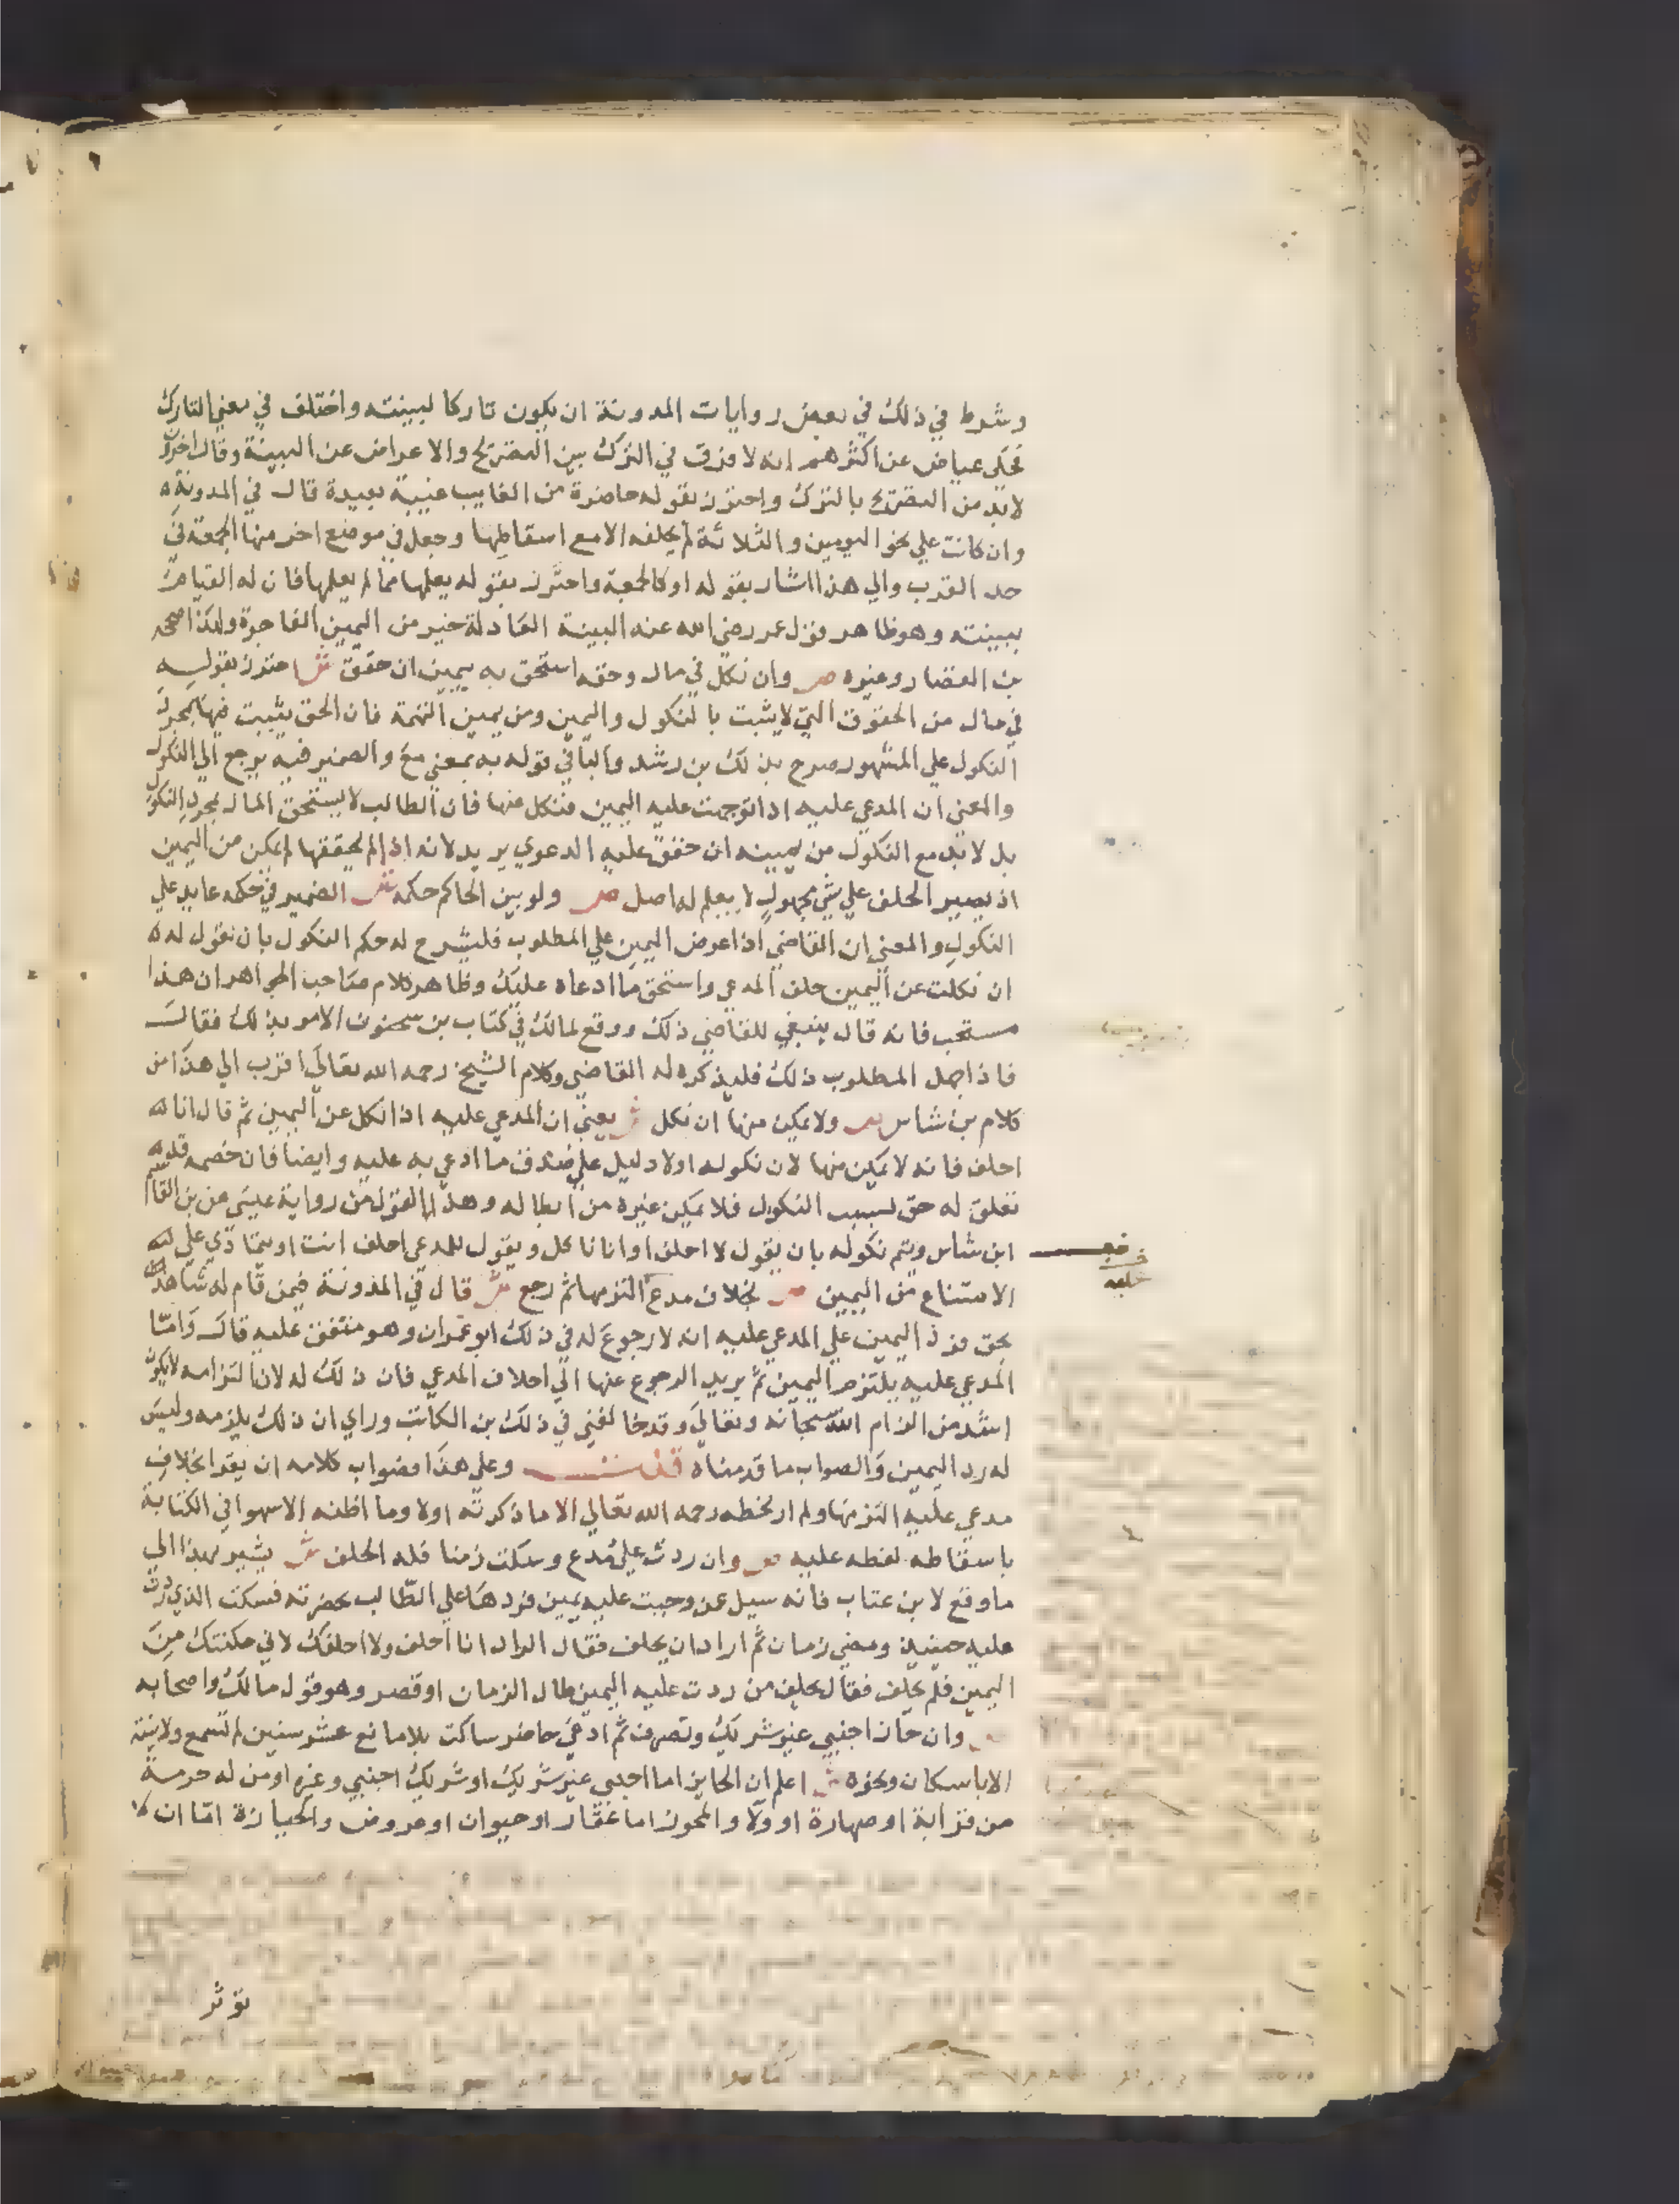 وشرط في ذلك في بعض روايات المدونة ان يكون تاركا لبينته واختلف في معني التارك
فحكي عياض عن اكثرهم انه لا فرق في الترك بين التصريح والاعراض عن البينة وقال اخرون
لابد من التصريح بالترك واحترز بقوله حاضرة من الغايب غيبة بعيدة قال في المدونة
وان كانت علي نحو اليومين والثلاثة لم يحلفه الا مع اسقاطها وجعل في موضع اخر منها الجمعة في
حد القرب والي هذا اشار بقوله او كالجمعة واحترز بقوله يعلمها مما لم يعلمها فان له القيام
ببينته وهو ظاهر قول عمر رضي الله عنه البينة العادلة خير من اليمين الفاجرة ولهذا صححه
بن القصار وغيره ص وان نكل في مال وحقه استحق به بيمين ان حقق ش احترز بقوله
في مال من الحقوق التي لا يثبت بالنكول واليمين ومن يمين التهمة فان الحق يثبت فيها بمجرد
النكول علي المشهور صرح بذلك بن رشد والبا في قوله به بمعني مع والضمير فيه يرجع الي النكول
والمعني ان المدعي عليه اذا توجهت عليه اليمين فنكل عنها فان الطالب لا يستحق المال بمجرد النكول
بل لابد مع النكول من يمينه ان حقق عليه الدعوي يريد لانه اذا لم يحققها لم يمكن من اليمين
اذ يصير الحلف علي شي مجهول لا يعلم له اصل ص ولو بين الحاكم حكمه ش الضمير في حكمه عايد علي
النكول والمعني ان القاضي اذا عرض اليمين علي المطلوب فليشرح له حكم النكول بان يقول له
ان نكلت عن اليمين حلف المدعي واستحق ما ادعاه عليك وظاهر كلام صاحب الجواهر ان هذا
مستحب فانه قال ينبغي للقاضي ذلك ووقع لمالك في كتاب بن سحنون الامر بذلك فقال
فاذا جهل المطلوب ذلك فليذكره له القاضي وكلام الشيخ رحمه الله تعالي اقرب الي هذا من
كلام بن شاس ص ولا يمكن منها ان نكل ش يعني ان المدعي عليه اذا نكل عن اليمين ثم قال انا
احلف فانه لا يمكن منها لان نكوله اولا دليل علي صدق ما ادعي به عليه وايضا فان خصمه قد
تعلق له حق بسبب النكول فلا يمكن غيره من ابطاله وهذا القول من رواية عيسي عن بن القاسم
ابن شاس ويتم نكوله بان يقول لا احلف او انا ناكل ويقول للمدعي احلف انت او يتمادي علي
الامتناع من اليمين ص بخلاف مدع التزمها ثم رجع ش قال في المدونة فيمن قام له شاهد
بحق فرد اليمين علي المدعي عليه انه لا رجوع له في ذلك ابو عمران وهو متفق عليه قال واما
المدعي عليه يلتزم اليمين ثم يريد الرجوع عنها الي احلاف المدعي فان ذلك له لان التزامه لا يكون
اشد من الزام الله سبحانه وتعالي وقد خالفني في ذلك بن الكاتب وراي ان ذلك يلزمه وليس
له رد اليمين والصواب ما قدمناه قلت وعلي هذا فصواب كلامه ان يقرا بخلاف
مدعي عليه التزمها ولم ار بخطه رحمه الله تعالي الا ما ذكرته اولا وما اظنه الا سهوا في الكتابة
باسقاطه لفظه عليه ص وان ردت علي مدع وسكت زمنا فله الحلف ش يشير بهذا الي
ما وقع لابن عتاب فانه سيل عن وجبت عليه يمين فردها علي الطالب بحضرته فسكت الذي ردت
عليه حينيذ ومضي زمان ثم اراد ان يحلف فقال الراد انا احلف ولا احلفك لاني مكنتك من
اليمين فلم تحلف فقال يحلف من ردت عليه اليمين طال الزمان او قصر وهو قول مالك واصحابه
ص وان حاز اجنبي غير شريك وتصرف ثم ادعي حاضر ساكت بلا مانع عشر سنين لم تسمع ولا بينته
الا باسكان ونحوه ش اعلم ان الحايز اما اجنبي غير شريك او شريك اجنبي وغيره او من له حرمة
من قرابة او صهارة او ولا والمحوز اما عقار او حيوان او عروض والحيازة اما ان لا
توثر